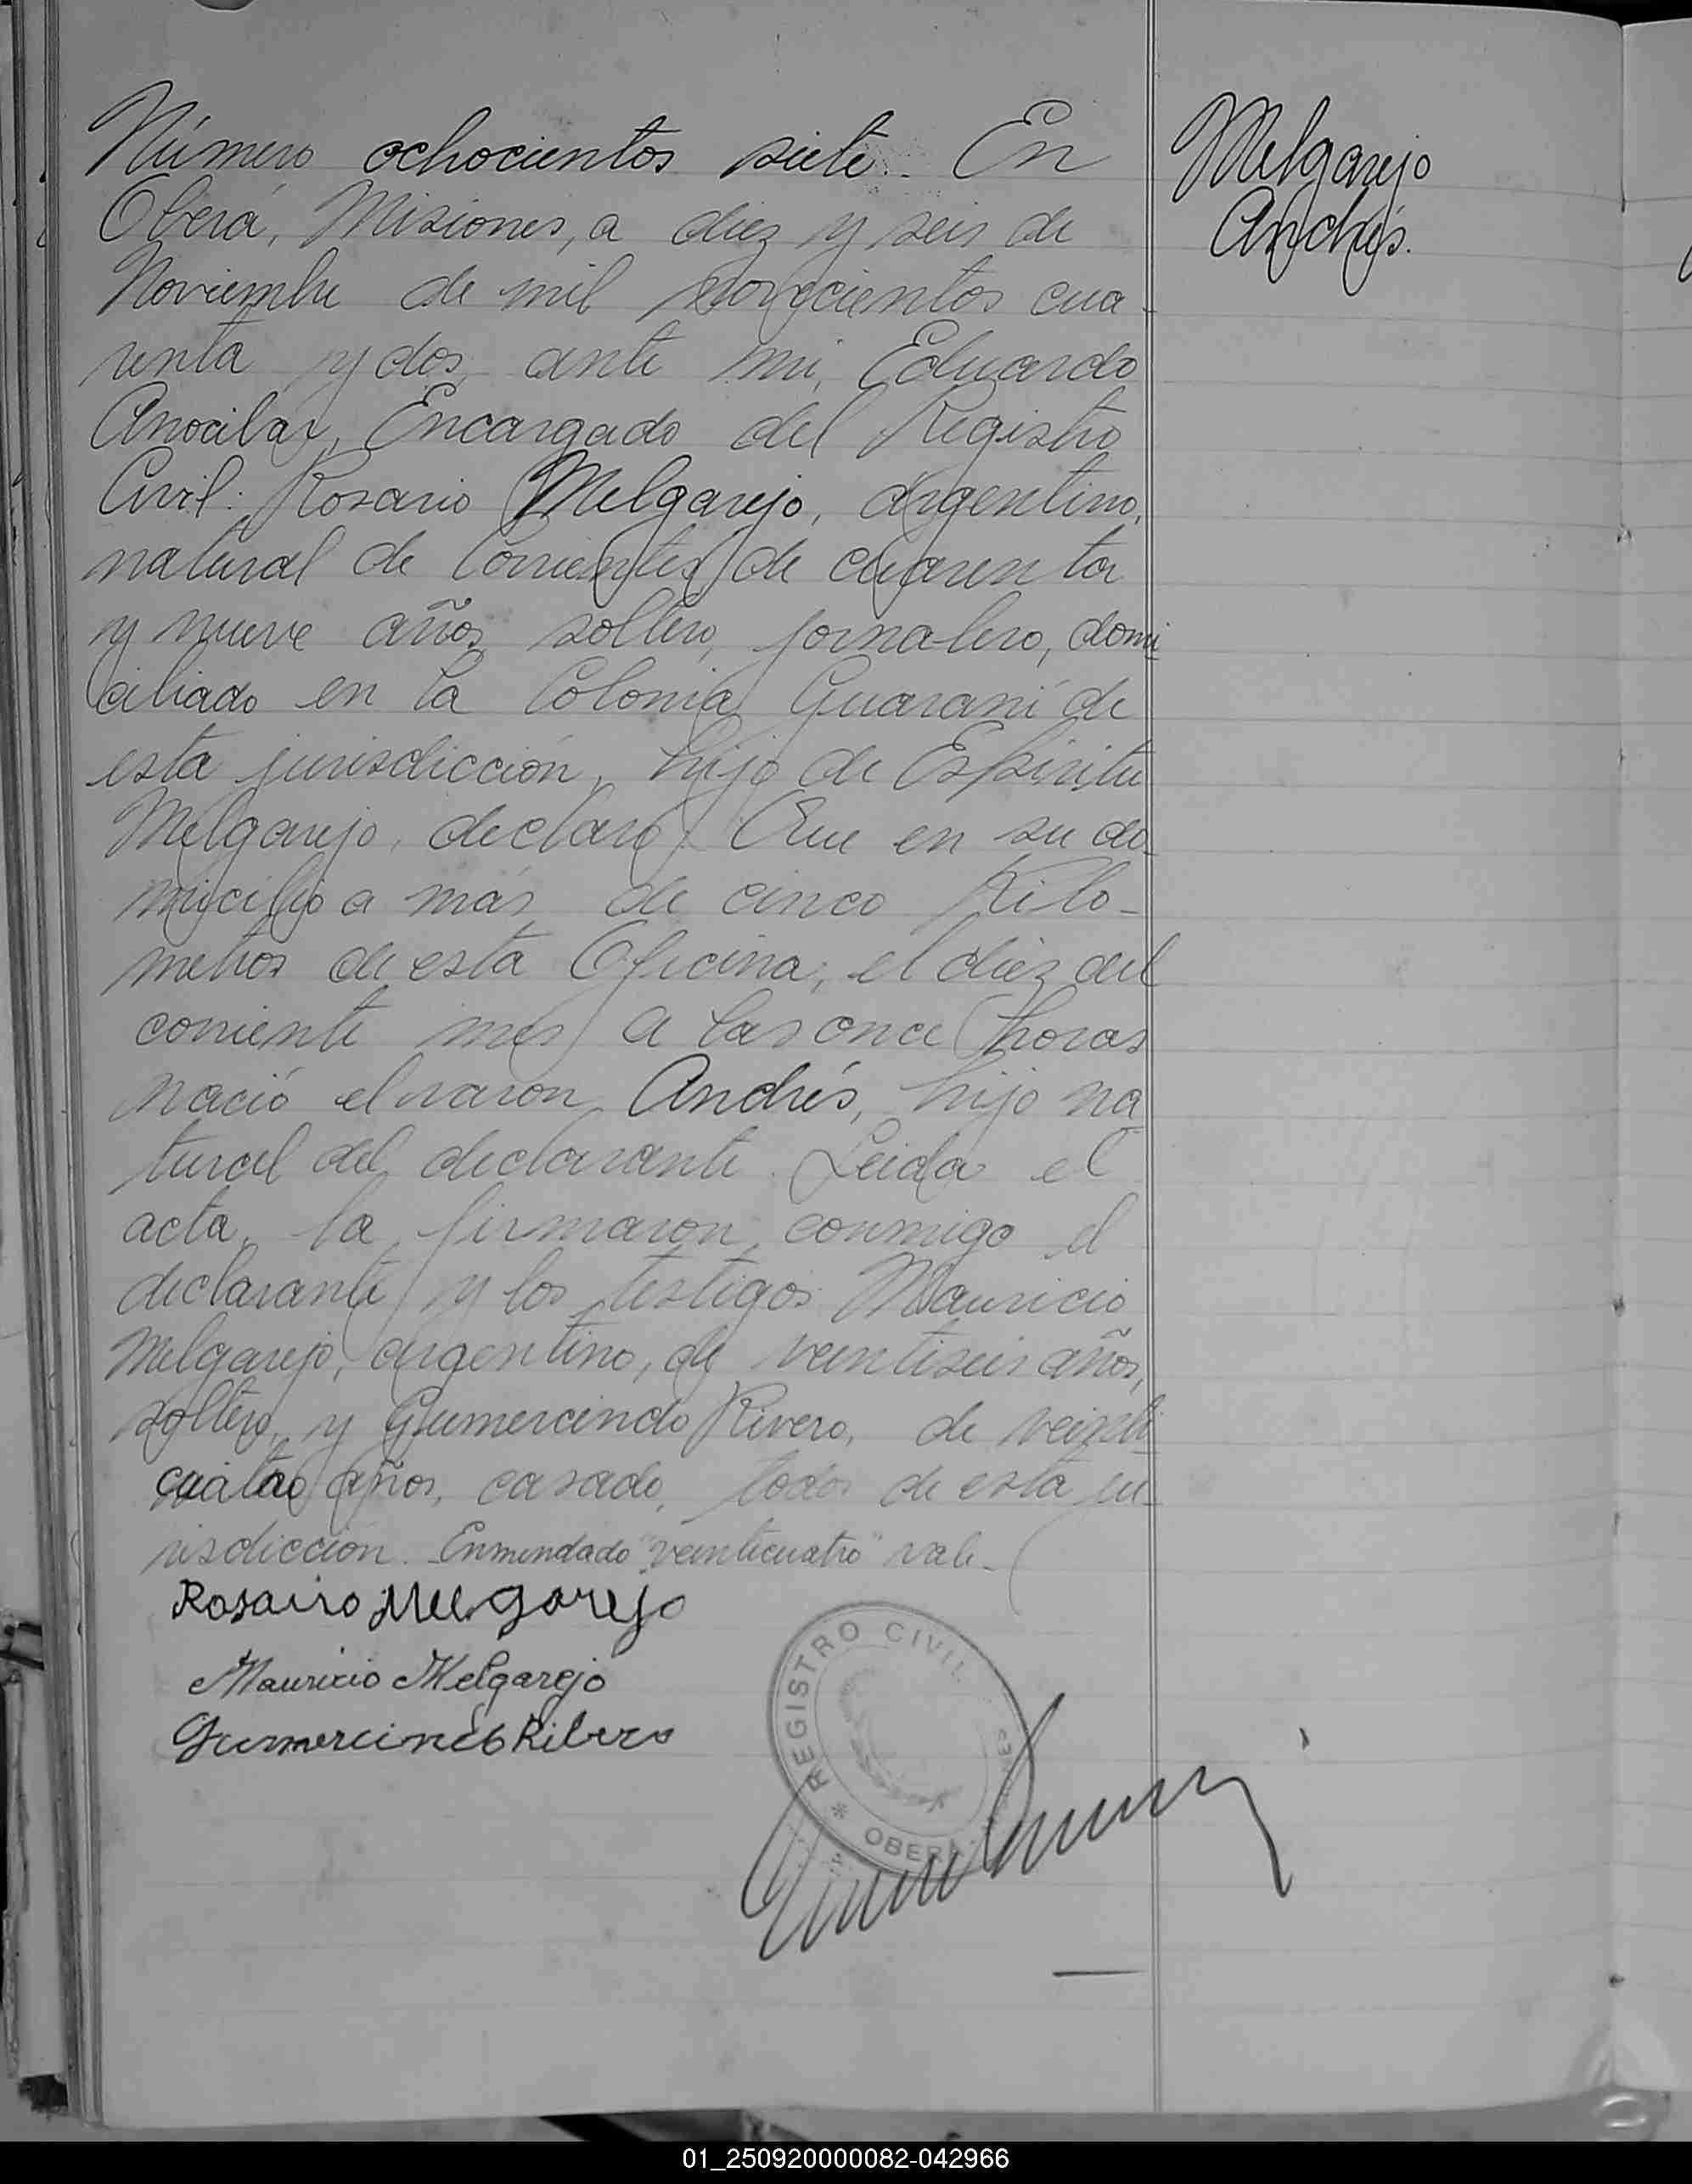 Número ochocientos siete. En
Oberá, Misiones, a diez y seis de
Noviembre de mil novecientos cua-
renta y dos, ante mi, Eduardo
Encargado del Registro
Civil: Rosario Melgarejo, argentino,
natural de Corrientes, de cuarenta
y nueve años, soltero, jornalero, domi
ciliado en la Colonia Guaraní de
esta jurisdicción, hijo de Espíritu
Melgarejo, declaró: Que en su do-
micilio a más de cinco Kiló-
metros de esta Oficina, el diez del
corriente mes a las once horas
nació el varon Andrés, hijo na
tural del declarante. Leida el
acta, la firmaron conmigo el
declarante y los testigos Mauricio
Melgarejo, argentino, de veintiseis años,
soltero, y Gumercindo Rivero, de veinti
cuatro años, casado, todos de esta ju-
risdicción. Enmendado "veinticuatro" vale-
Rosairo Melgarejo
Mauricio Melgarejo
Gumercindo Ribero
REGISTRO CIVIL
OBERÁ
Melgarejo
Andrés.
01_250920000082-042966